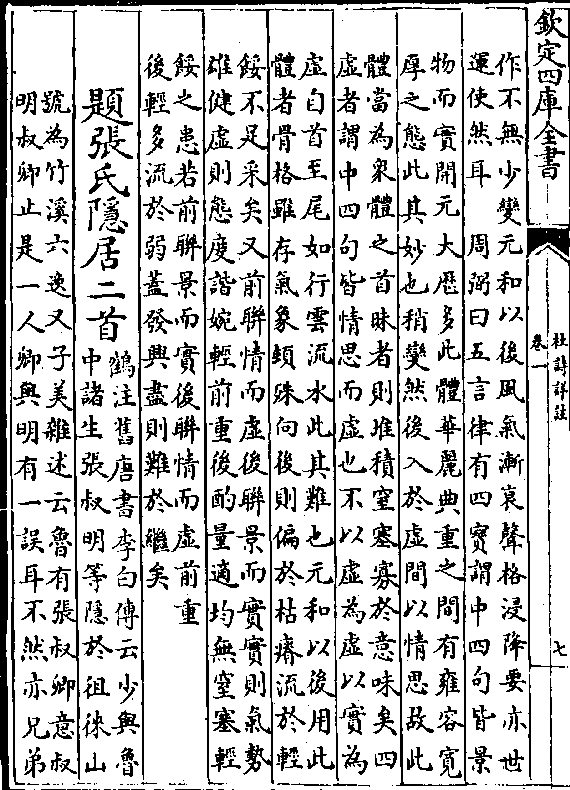 欽定四庫全書
杜詩詳註
卷一
七
作不無少變元和以後風氣漸衰聲格浸降要亦世
運使然耳　周弼曰五言律有四實謂中四句皆景
物而實開元大歷多此體華麗典重之間有雍容寬
厚之態此其妙也稍變然後入於虛間以情思故此
體當為衆體之首昧者則堆積窒塞寡於意味矣四
虛者謂中四句皆情思而虛也不以虛為虛以實為
虛自首至尾如行雲流水此其難也元和以後用此
體者骨格雖存氣象頓殊向後則偏於枯瘠流於輕
餒不足采矣又前聯情而虛後聯景而實實則氣勢
雄健虛則態度諧婉輕前重後酌量適均無窒塞輕
餒之患若前聯景而實後聯情而虛前重
後輕多流於弱蓋發興盡則難於繼矣
題張氏隱居二首
鶴注舊唐書李白傳云少與魯
中諸生張叔明等隱於徂徠山
號為竹溪六逸又子美雜述云魯有張叔卿意叔
明叔卿止是一人卿與明有一誤耳不然亦兄弟